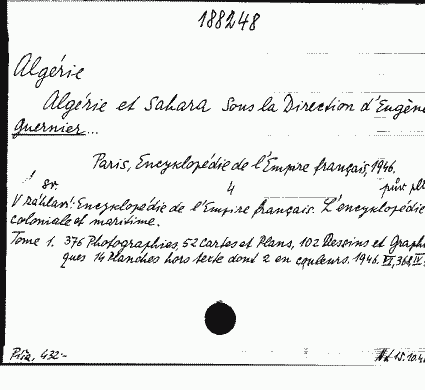 188248
Algérie
Algérie et Sahara Sous la Direction d'Eugène
Guernier...
Paris, Encyklopédie de l'Empire français, 1946.
1 sv. 4 pův. pl
V záhlaví: Encyklopédie de l'Empire français. L'encyclopédie
coloniale et maritime.
Tome 1. 376 Photographies, 52 Cartes et Plans, 102 Dessins et Graphi
ques 14 Planches hors texte dont 2 en couleurs. 1946. VI, 368 IV
432.-
15.10.4